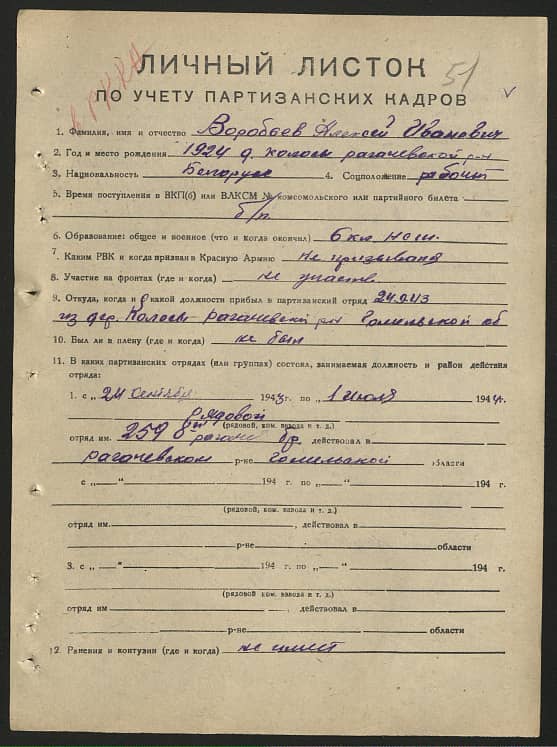 в РККА
51
V
ЛИЧНЫЙ ЛИСТОК
ПО УЧЕТУ ПАРТИЗАНСКИХ КАДРОВ
1. Фамилия, имя и отчество Воробьев Алексей Иванович
2. Год и место рождения 1924 д. Колосы рагачевской р-н
3. Национальность Белорус 4. Соцположение рабочий
5. Время поступления в ВКП(б) или ВЛКСМ № комсомольского или партийного билета
б/п.
6. Образование: общее и военное (что и когда окончил) 6 кл. нсш.
7. Каким РВК и когда призван в Красную Армию не призывался
8. Участие на фронтах (где и когда) не участв.
9. Откуда, когда и с какой должности прибыл в партизанский отряд 24.9.43
из дер. Колосы рагачевской р-н Гомельской об
10. Был ли в плену (где и когда) не был
11. В каких партизанских отрядах (или группах) состоял, занимаемая должность и район действия
отряда:
1. с „24 сентября 1943 г. по „1 июля 1944 г.
рядовой
(рядовой, ком. взвода и т. д.)
отряд им. 259 бр. действовал в
рагачевском р-не гомельской области
с „—“ 194 г. по „—“ 194 г.
(рядовой, ком. взвода и т. д.)
отряд им. , действовал в
р-не области
3. с „—“ 194 г. по „—“ 194 г.
(рядовой ком. взвода и т. д.)
отряд им , действовал в
р-не области
12. Ранения и контузии (где и когда) не имеет